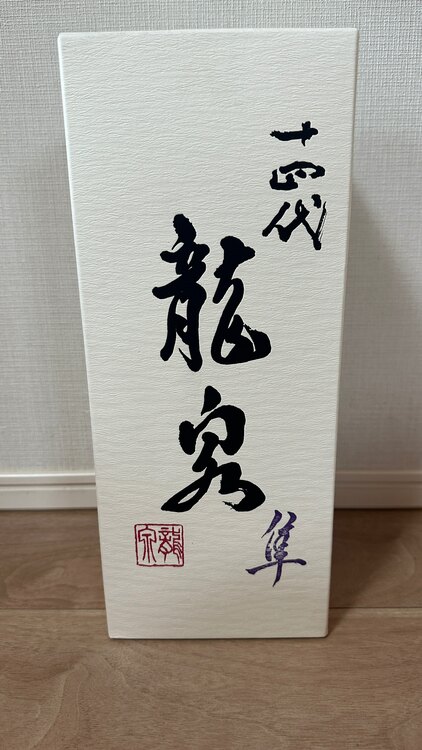 十四代
龍泉
隼
龍泉